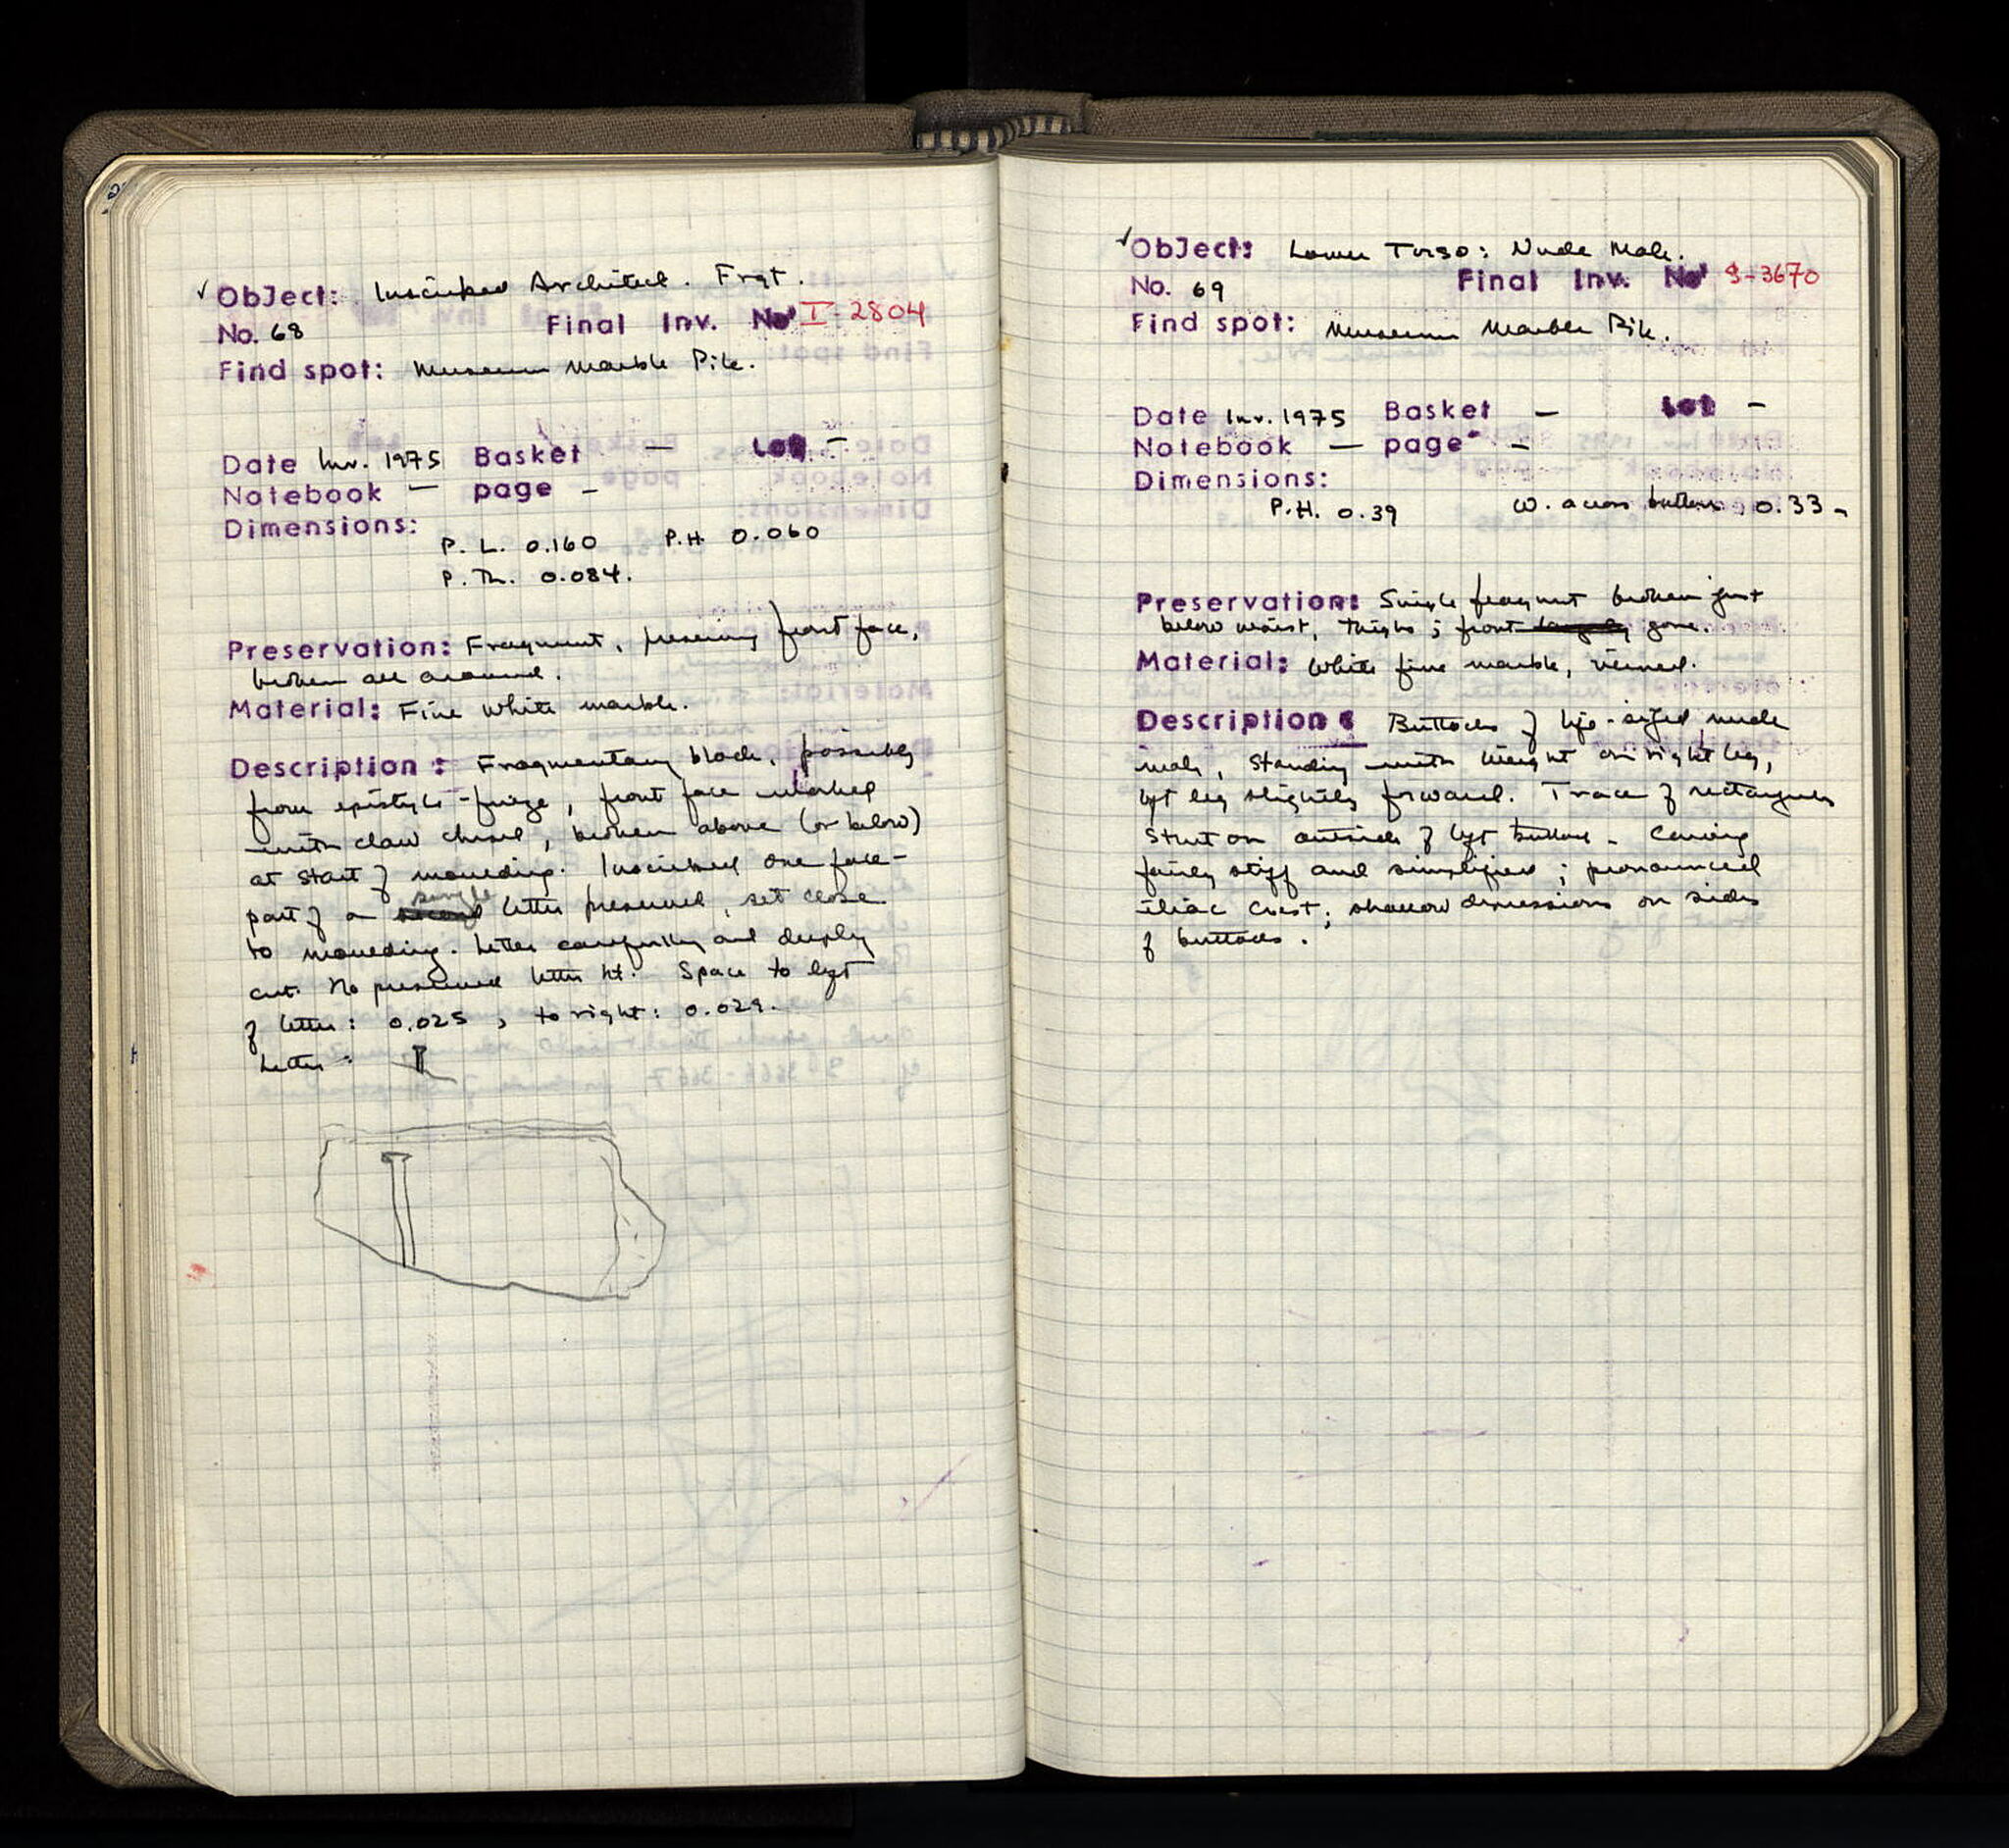 ✓ Object: Inscribed Architect. Frgt.
No. 68 Final Inv. No I-2804
Find spot: Museum Marble Pile.
Date Inv. 1975 Basket — Lot —
Notebook — page –
Dimensions:
P. L. 0.160 P.H. 0.060
P. Th. 0.084.
Preservation: Fragment, preserving front face,
broken all around.
Material: Fine white marble.
Description: Fragmentary block, possibly
from epistyle-frieze, front face worked
with claw chisel, broken above (or below)
at start of moulding. Inscribed one face-
part of a single letter preserved, set close
to moulding. Letter carefully and deeply
cut. No preserved letter ht. Space to left
of letter: 0.025, to right: 0.029.
Letter: I
✓ Object: Lower Torso: Nude Male.
No. 69 Final Inv. No S-3670
Find spot: Museum Marble Pile.
Date Inv. 1975 Basket — Lot —
Notebook — page –
Dimensions:
P.H. 0.39 W. across buttocks 0.33
Preservation: Single fragment broken just
below waist, thighs; front largely gone.
Material: White fine marble, veined.
Description: Buttocks of life-sized nude
male, standing with weight on right leg,
left leg slightly forward. Trace of rectangular
strut on outside of left buttock. Carving
fairly stiff and simplified; pronounced
iliac crest; shallow depressions on sides
of buttocks.